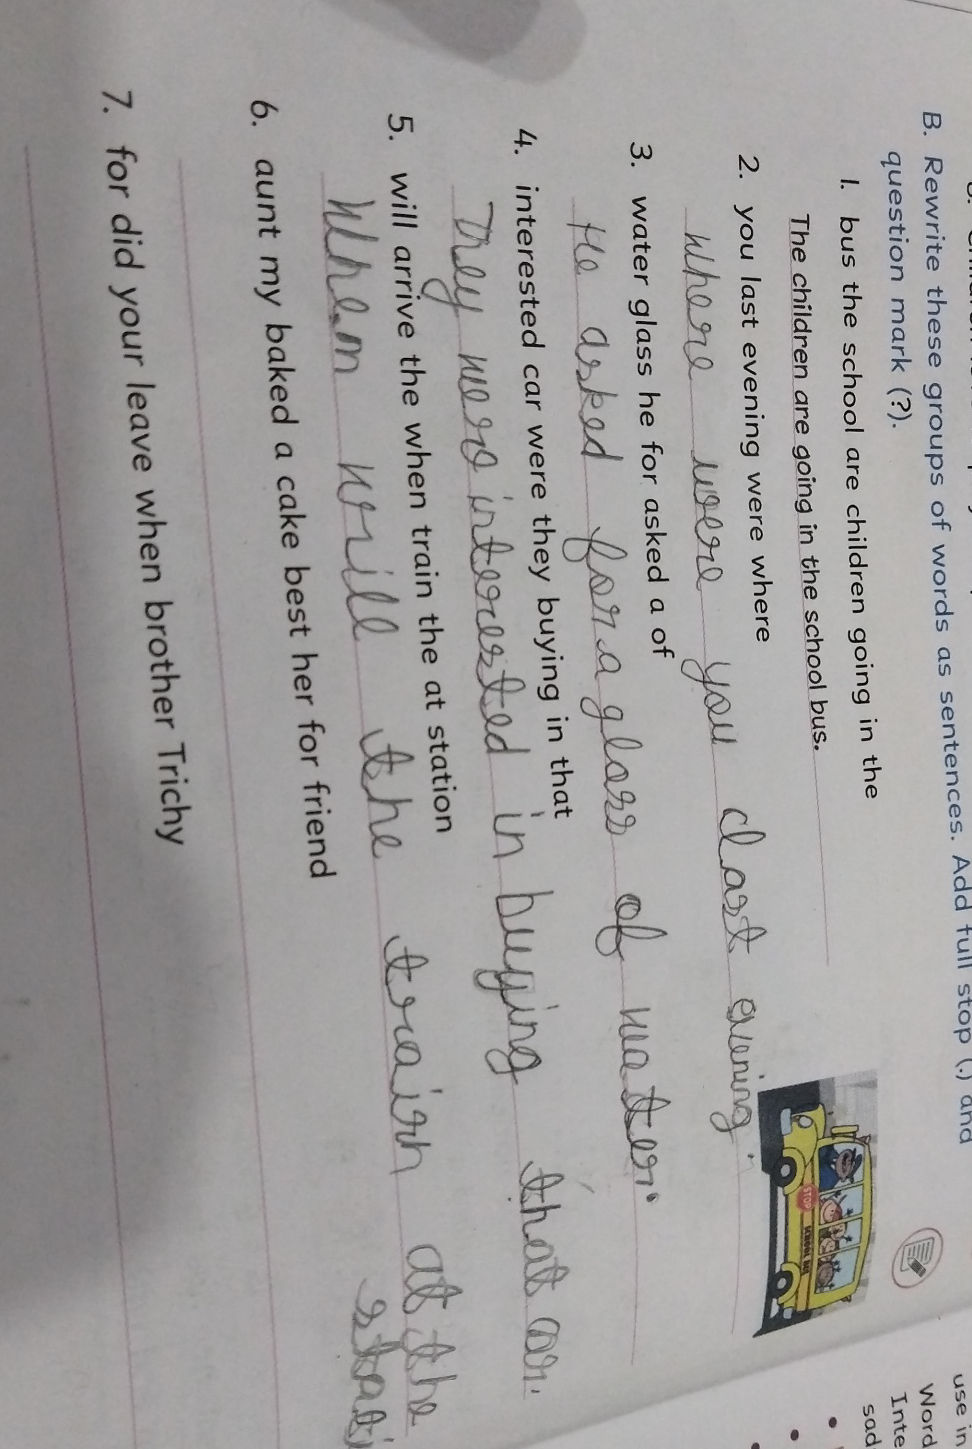 B. Rewrite these groups of words as sentences. Add full stop (.) and
question mark (?).
1. bus the school are children going in the
The children are going in the school bus.
2. you last evening were where
where were you last evening.
3. water glass he for asked a of
He asked for a glass of water.
4. interested car were they buying in that
They were interested in buying that car.
5. will arrive the when train the at station
When will the train at the
6. aunt my baked a cake best her for friend
7. for did your leave when brother Trichy
STOP
SCHOOL BUS
use in
Word
Inte
sad